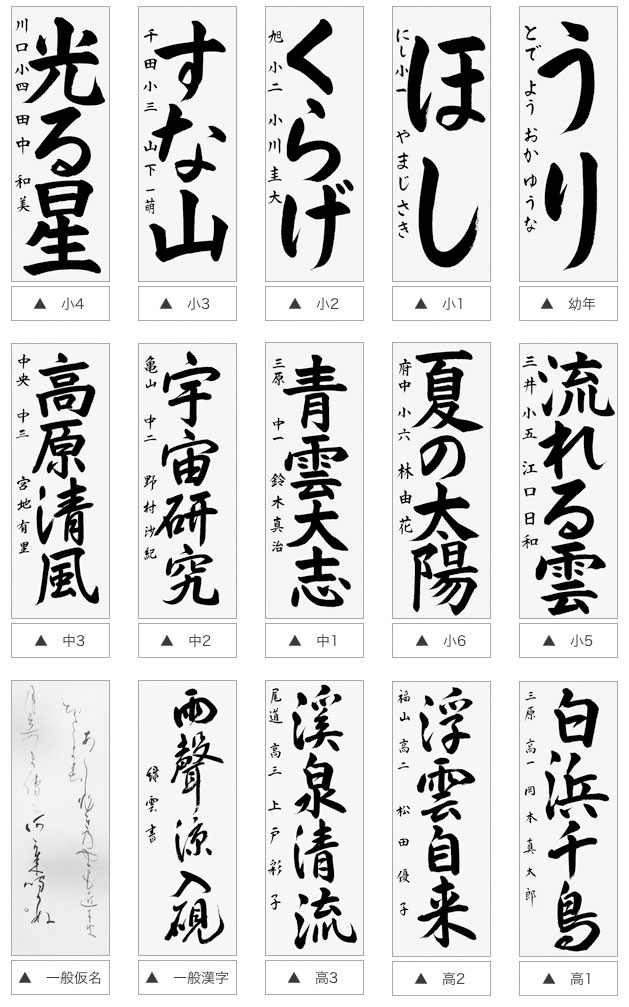 うり
とで ようおか ゆうな
▲ 幼年
ほし
にし小一 やまじ さき
▲ 小1
くらげ
旭小二 小川圭大
▲ 小2
すな山
千田小三 山下一萌
▲ 小3
光る星
川口小四 田中和美
▲ 小4
流れる雲
三井小五 江口日和
▲ 小5
夏の太陽
府中小六 林由花
▲ 小6
青雲大志
三原中一 鈴木真治
▲ 中1
宇宙研究
亀山中二 野村沙紀
▲ 中2
高原清風
中央中三 宮地有里
▲ 中3
白浜千鳥
三原高一 岡本真太郎
▲ 高1
浮雲自来
福山高二 松田優子
▲ 高2
渓泉清流
尾道高三 上戸彩子
▲ 高3
雨聲涼入硯
雲書
▲ 一般漢字
▲ 一般仮名